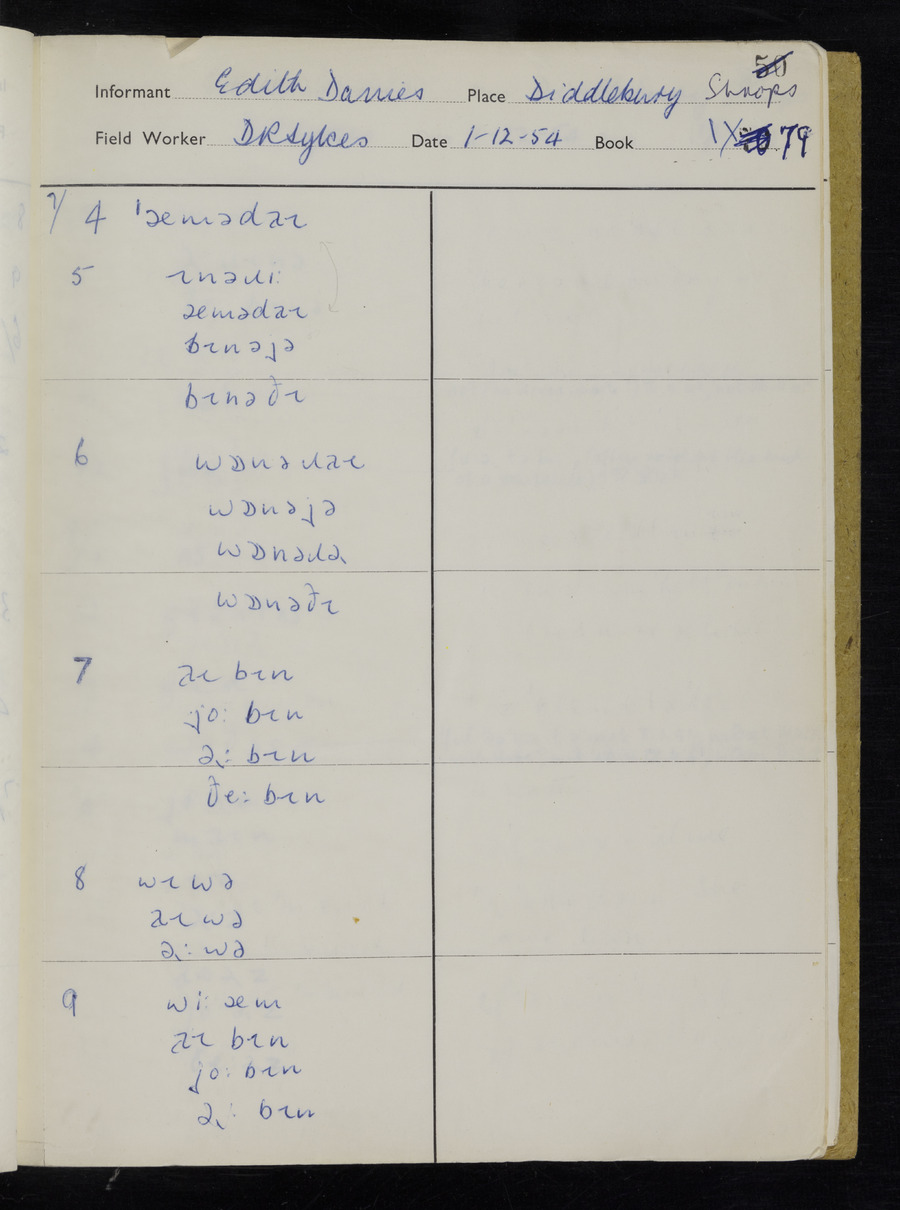 50
Informant Edith Davies Place Diddlebury Shrops
Field Worker DRSykes Date 1-12-54 Book IX 79
7/ 4 ˈæmədaɪ
5 ɪnəɹi:
æmədaɪ
bɪnəjə
bɪnəðɪ
6 wɒnəɹaɪ
wɒnəjə
wɒnəɹə˞
wɒnəðɪ
7 aɪ bɪn
jo: bɪn
ə˞: bɪn
ðe: bɪn
8 wɪ wə
aɪ wə
ə˞: wə
9 wi: æm
aɪ bɪn
jo: bɪn
ə˞: bɪn